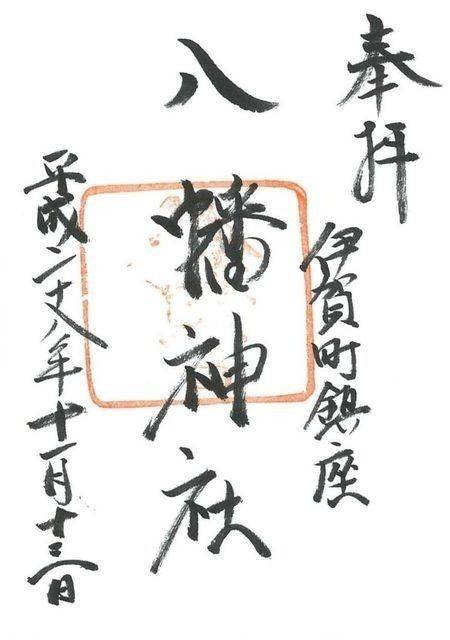 奉拝
伊賀町鎮座
八幡神社
平成二十八年十一月十三日